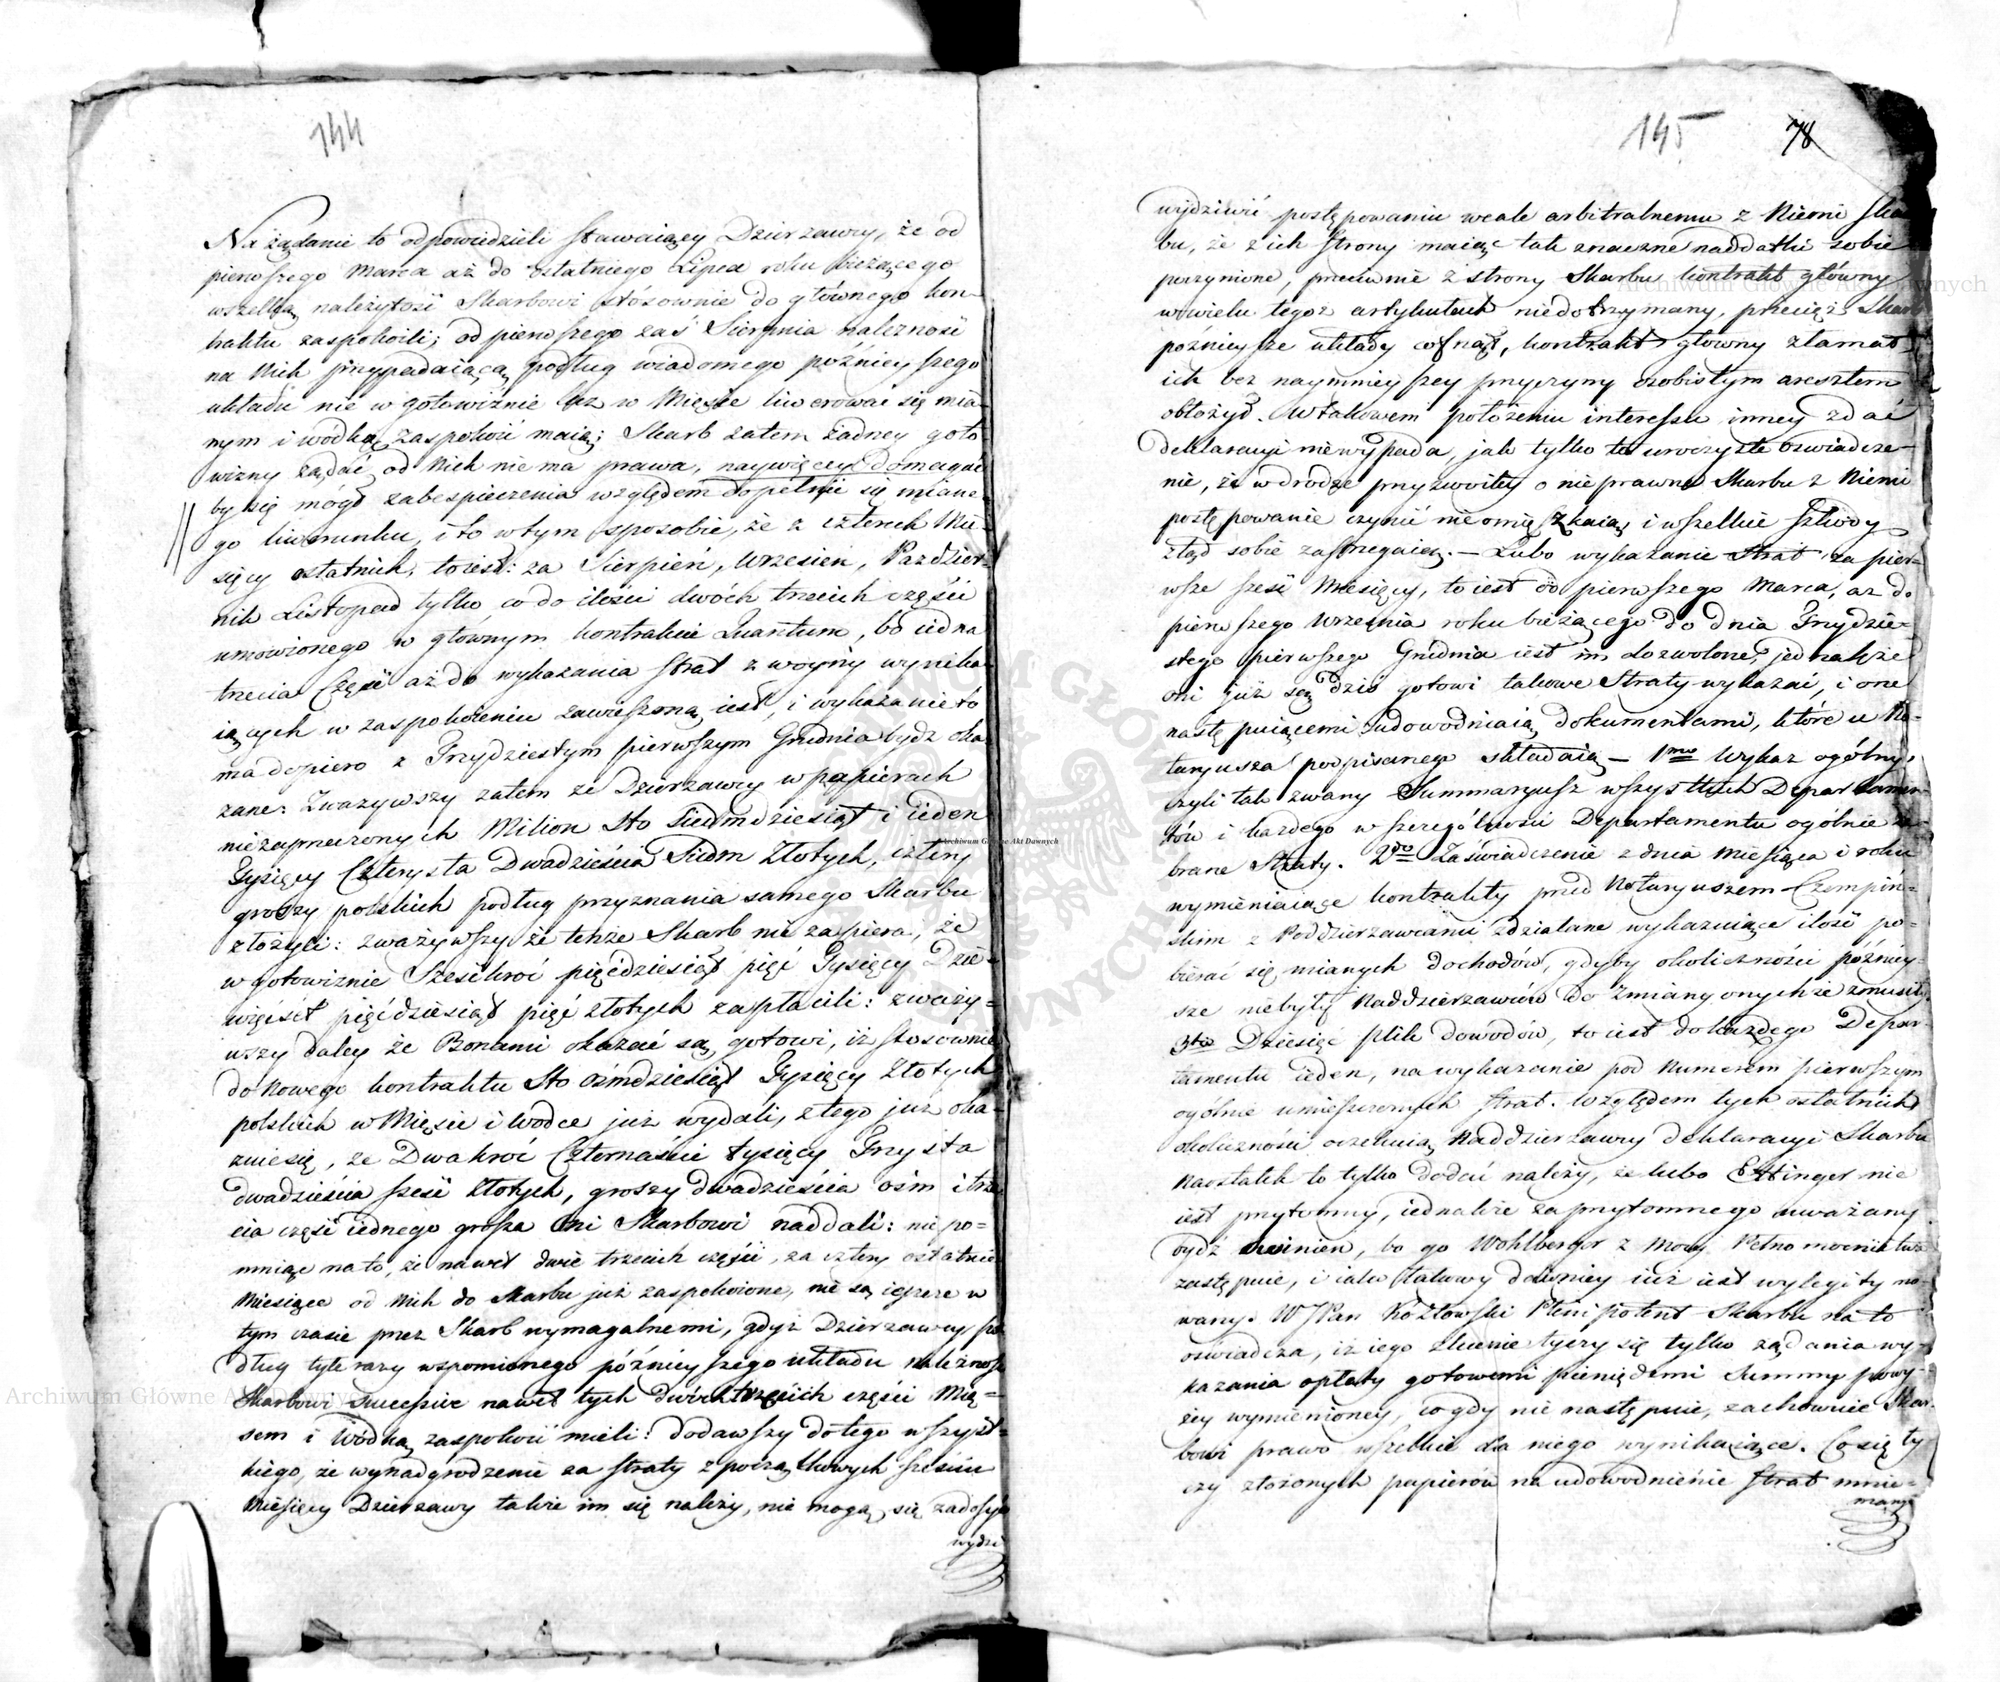 144
Na żądanie to odpowiedzieli stawaiący Dzierzawcy, że od
pierwszego Marca aż do ostatniego Lipca roku bieżącego
wszelką należytość Skarbowi stósownie do głównego kon-
traktu zaspokoili; od pierwszego zaś Sierpnia należność
na nich przypadaiącą podług wiadomego późnieyszego
układu nie w gotowiznie lecz w Mięsie liwerować się mia-
nym i wódką zaspokoić maią; Skarb zatem żadney goto-
wizny żądać od nich nie ma prawa, naywięcey domagać
by się mógł zabespieczenia względem dopełnić się miane-
go liwerunku, i to w tym sposobie, że z czterech Mie-
sięcy ostatnich, toiest: za Sierpień, Wrzesień, Paździer-
nik Listopad tylko co do ilości dwóch trzecich części
umówionego w głównym kontrakcie Quantum, bo iedna
trzecia Część aż do wykazania strat z woyny wynika-
iących w zaspokoieniu zawieszoną iest, i wykazanie to
ma dopiero z Trzydziestym pierwszym Grudnia bydz oka-
zane: Zważywszy zatem że Dzierzawcy w papierach
niezaprzeczonych Milion sto siedmdziesiąt i ieden
Tysięcy Czterysta Dwadzieścia Siedm Złotych, cztery
groszy polskich podług przyznania samego Skarbu
złożyli: zważywszy że tenże Skarb nie zapiera, że
w gotowiznie Sześćkroć pięćdziesiąt pięć Tysięcy Dzie-
więćset pięćdziesiąt pięć złotych zapłacili: zważy-
wszy daley że Bonami okazać są gotowi, iż stosownie
do nowego kontraktu sto ośmdziesiąt Tysięcy Złotych
polskich w Mięsie i wodce już wydali, z tego już oka-
zuie się, że Dwakroć Czternaście tysięcy Trzysta
dwadzieścia sześć złotych, groszy dwadzieścia ośm i trze
cia część iednego grosza oni Skarbowi naddali: nie po-
mniąc na to, że nawet dwie trzecich części, za cztery ostatnie
Miesiące od nich do Skarbu już zaspokoione, nie są ieszcze w
tym czasie przez Skarb wymagalnemi, gdyż Dzierzawcy po
dług tyle razy wspomionego późnieyszego układu należność
Skarbowi successive nawet tych dwóch trzecich części Mię-
sem i Wódką zaspokoić mieli: Dodawszy do tego wszyst-
kiego, że wynadgrodzenie za straty z początkowych sześciu
Miesięcy Dzierzawy także im się należy, nie mogą się zadosyć
wydzi
145 78
wydziwić postępowaniu wcale arbitralnemu z Niemi Skar
bu, że z ich strony maiąc tak znaczne naddatki sobie
poczynione, przeciwnie z strony Skarbu kontrakt główny
w wielu tegoż artykułach niedotrzymany, przecięż Skarb
późnieysze układy cofnął, kontrakt główny złamał
ich bez naymnieyszey przyczyny osobistym aresztem
obłożył. W takowem położeniu interessu inney zdać
deklaracyi nie wypada, jak tylko to uroczyste oświadcze-
nie, że w drodze przyzwoitey o nieprawne Skarbu z Niemi
postępowanie czynić nie omięszkaią i wszelkie szkody
ztąd sobie zastrzegaią. — Lubo wykazanie strat za pier-
wsze sześć Miesięcy, to iest od pierwszego Marca, aż do
pierwszego Września roku bieżącego do dnia Trzydzie-
stego pierwszego Grudnia iest im dozwolone, jednakże
oni już są dziś gotowi takowe straty wykazać, i one
następuiącemi udowodniaią dokumentami, które u No-
taryusza podpisanego składaią — 1mo Wykaz ogólny,
czyli tak zwany Summaryusz wszystkich Departamen-
tów i każdego w szczególności Departamentu ogólnie ze-
brane straty. 2do Zaświadczenie z dnia miesiąca i roku
wymieniaiące kontrakty przed Notaryuszem Czempiń-
skim z Poddzierzawcami zdziałane wykazuiące ilość po-
bierać się mianych dochodów, gdyby okoliczności późniey-
sze niebyły Naddzierzawców do zmiany onychże zmusiły
3tio Dziesięć plik dowodów, to iest do każdego Depar-
tamentu ieden, na wykazanie pod Numerem pierwszym
ogólnie umieszczonych strat. Względem tych ostatnich
okoliczności oczekuią Naddzierzawcy deklaracyi Skarbu
Naostatek to tylko dodać należy, że lubo Ettinger nie
iest przytomny, iednakże za przytomnego uważany
bydź winien, bo go Wohlberger z mocy Pełnomocnictwa
zastępuie, i iako takowy dawniey już iest wylegitymo-
wany. WJPan Kozłowski Plenipotent Skarbu na to
oświadcza, iż iego zlecenie tyczy się tylko żądania wy-
kazania opłaty gotowemi pieniędzmi Summy powy-
żey wymienioney, co gdy nie następuie, zachowuie Skar-
bowi prawo wszelkie dla niego wynikaiące. Co się ty
czy złożonych papierów na udowodnienie strat mnie-
manych
Archiwum Główne Akt Dawnych